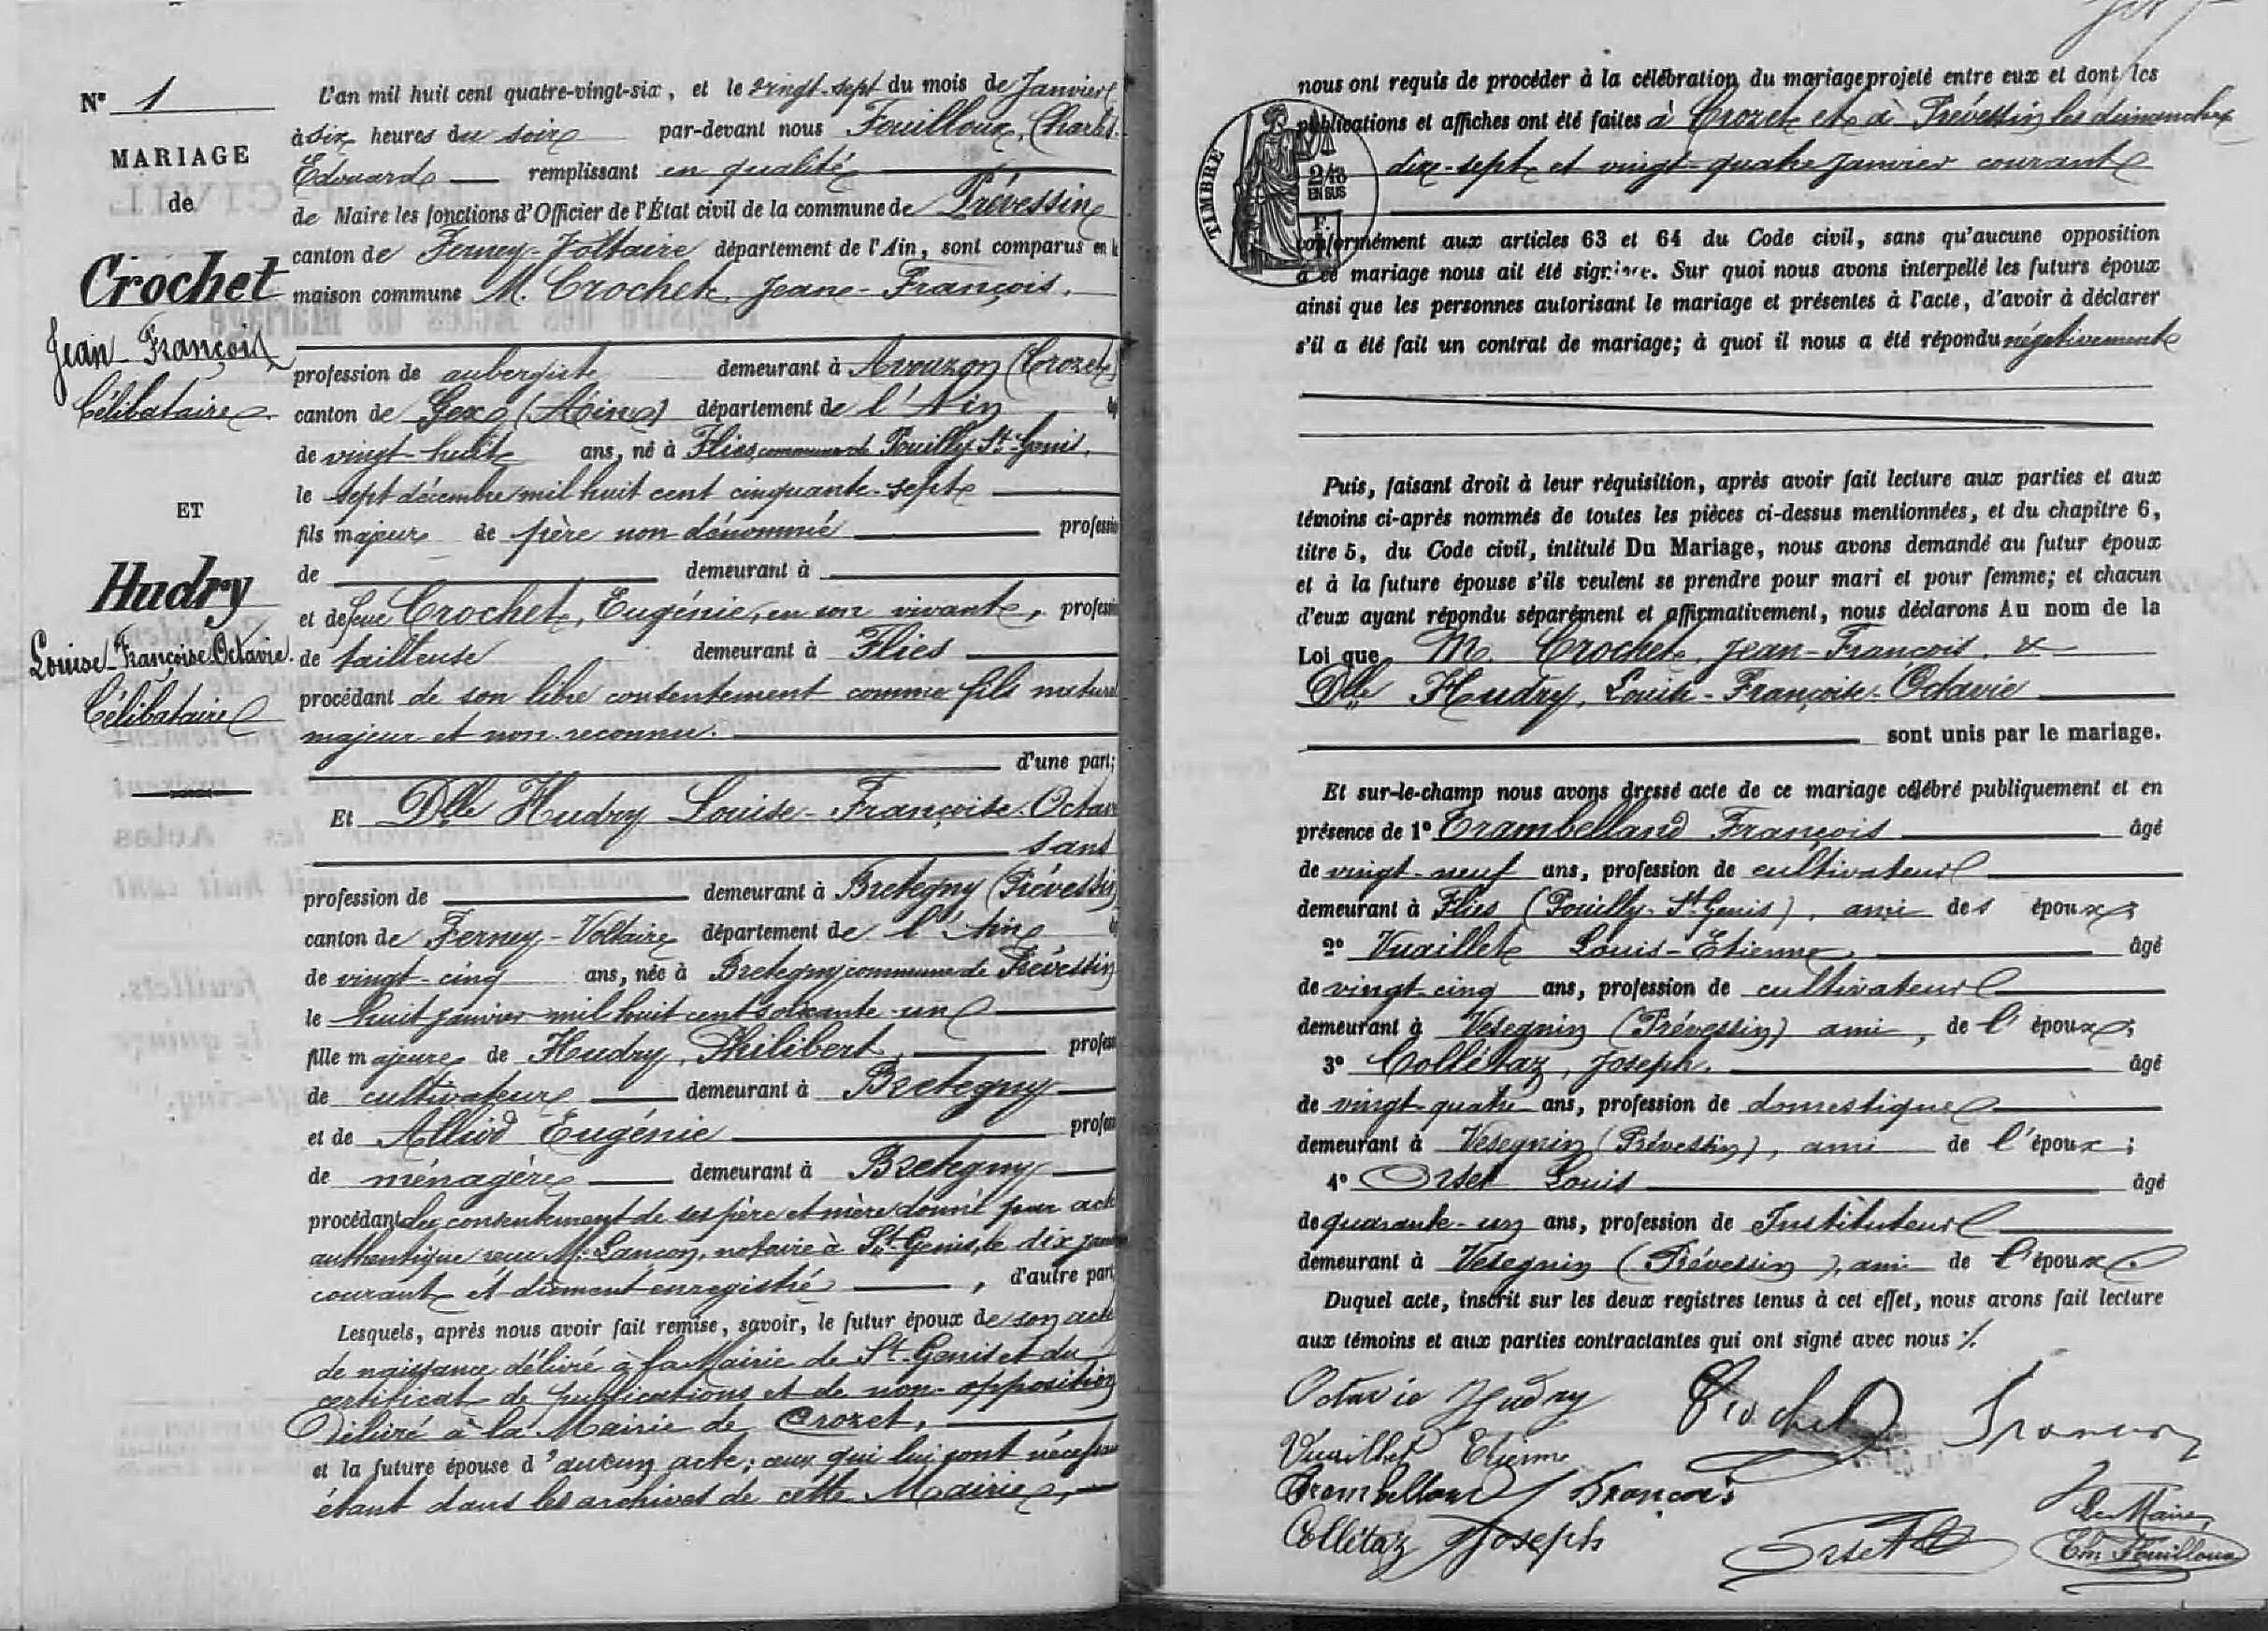 N° 1
MARIAGE
de
Crochet
Jean-François
Célibataire
ET
Hudry
Louise-Françoise Octavie.
Célibataire
L'an mil huit cent quatre-vingt-six, et le vingt-sept du mois de Janvier
à six heures du soir par-devant nous Fouilloux, Charles-
Edouard remplissant en qualité
de Maire les fonctions d'Officier de l'État civil de la commune de Prévessin
canton de Ferney-Voltaire département de l'Ain, sont comparus en la
maison commune M. Crochet Jean-François.
profession de aubergiste demeurant à Avouzon (Crozet)
canton de Gex (Ain) département de l'Ain
de vingt-huit ans, né à Flies, commune de Pouilly-St-Genis,
le sept décembre mil huit cent cinquante-sept
fils majeur de père non dénommé profession
de demeurant à
et de feue Crochet, Eugénie, en son vivant, profession
de tailleuse demeurant à Flies
procédant de son libre consentement comme fils naturel
majeur et non reconnu.
d'une part;
Et Dlle Hudry Louise-Françoise-Octav
sans
profession de demeurant à Bretegny (Prévessin)
canton de Ferney-Voltaire département de l'Ain
de vingt-cinq ans, née à Bretegny commune de Prévessin
le huit janvier mil huit cent soixante-un
fille majeure de Hudry, Philibert, profess
de cultivateur demeurant à Bretegny
et de Alliod Eugénie profess
de ménagère demeurant à Bretegny
procédant du consentement de ses père et mère donné par acte
authentique reçu Me Lançon, notaire à St-Genis, le dix janv
courant et dûment enregistré, d'autre part
Lesquels, après nous avoir fait remise, savoir, le futur époux de son acte
de naissance délivré à la Mairie de St-Genis et du
certificat de publications et de non-opposition
délivré à la Mairie de Crozet,
et la future épouse d'aucun acte; ceux qui lui sont nécess
étant dans les archives de cette Mairie,
nous ont requis de procéder à la célébration du mariage projeté entre eux et dont les
publications et affiches ont été faites à Crozet et à Prévessin les dimanches
dix-sept et vingt-quatre janvier courant
TIMBRE
2/10
EN SUS
conformément aux articles 63 et 64 du Code civil, sans qu'aucune opposition
à ce mariage nous ait été signifiée. Sur quoi nous avons interpellé les futurs époux
ainsi que les personnes autorisant le mariage et présentes à l'acte, d'avoir à déclarer
s'il a été fait un contrat de mariage; à quoi il nous a été répondu négativement
Puis, faisant droit à leur réquisition, après avoir fait lecture aux parties et aux
témoins ci-après nommés de toutes les pièces ci-dessus mentionnées, et du chapitre 6,
titre 5, du Code civil, intitulé Du Mariage, nous avons demandé au futur époux
et à la future épouse s'ils veulent se prendre pour mari et pour femme; et chacun
d'eux ayant répondu séparément et affirmativement, nous déclarons Au nom de la
Loi que M. Crochet, Jean-François, &
Dlle Hudry, Louise-Françoise-Octavie
sont unis par le mariage.
Et sur-le-champ nous avons dressé acte de ce mariage célébré publiquement et en
présence de 1° Trambelland François âgé
de vingt-neuf ans, profession de cultivateur
demeurant à Flies (Pouilly-St-Genis), ami des époux;
2° Vuaillet Louis-Etienne âgé
de vingt-cinq ans, profession de cultivateur
demeurant à Vesegnin (Prévessin) ami, de l'époux;
3° Collétaz, Joseph. âgé
de vingt-quatre ans, profession de domestique
demeurant à Vesegnin (Prévessin), ami de l'époux;
4° Orset Louis âgé
de quarante-un ans, profession de Instituteur
demeurant à Vesegnin (Prévessin), ami de l'époux.
Duquel acte, inscrit sur les deux registres tenus à cet effet, nous avons fait lecture
aux témoins et aux parties contractantes qui ont signé avec nous ./.
Octavie Hudry Crochet François
Vuaillet Etienne
Trambelland François
Le Maire,
Collétaz Joseph Orset Ch. Fouilloux